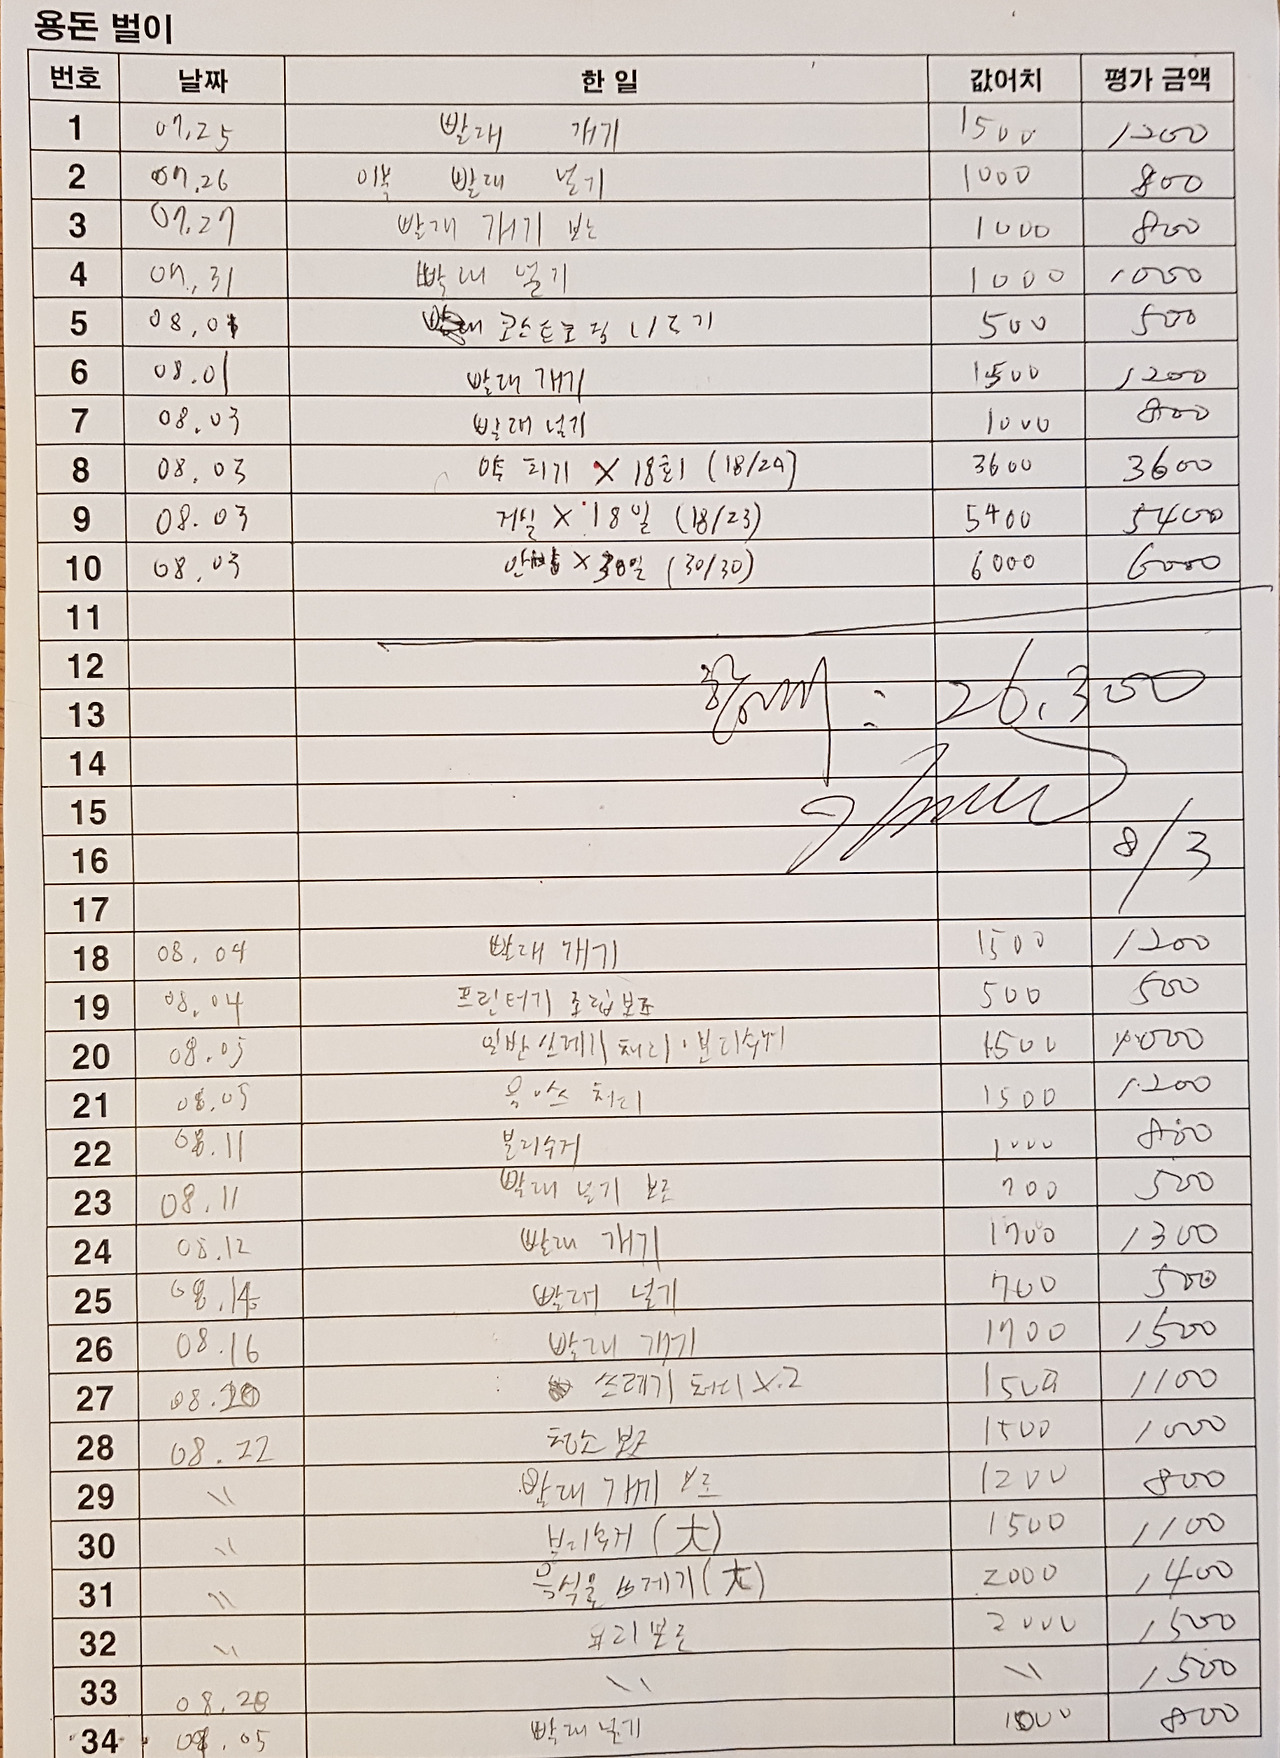 용돈 벌이
번호 날짜 한 일 값어치 평가 금액
1 07.25 빨래 개기 1500 1200
2 07.26 이복 빨래 널기 1000 800
3 07.27 빨래 개기 보조 1000 800
4 07.31 빨래 널기 1000 1000
5 08.01 코스트코 짐 나르기 500 500
6 08.01 빨래 개기 1500 1200
7 08.03 빨래 널기 1000 800
8 08.03 이복 피기 X 18회 (18/24) 3600 3600
9 08.03 거실 X 18일 (18/23) 5400 5400
10 08.03 X 30일 (30/30) 6000 6000
11
12
13 총액 : 26,300
14
15
16 8/3
17
18 08.04 빨래 개기 1500 1200
19 08.04 프린터기 조립보조 500 500
20 08.05 일반 쓰레기 처리·분리수거 1500 1000
21 08.05 음쓰 처리 1500 1200
22 08.11 분리수거 1000 800
23 08.11 빨래 널기 보조 700 500
24 08.12 빨래 개기 1700 1300
25 08.14 빨래 널기 700 500
26 08.16 빨래 개기 1700 1500
27 08.20 쓰레기 처리 X 2 1500 1100
28 08.22 청소 보조 1500 1000
29 〃 빨래 개기 보조 1200 800
30 〃 분리수거 (大) 1500 1100
31 〃 음식물 쓰레기 (大) 2000 1400
32 〃 요리 보조 2000 1500
33 08.28 〃 〃 1500
34 08.05 빨래 널기 1000 800